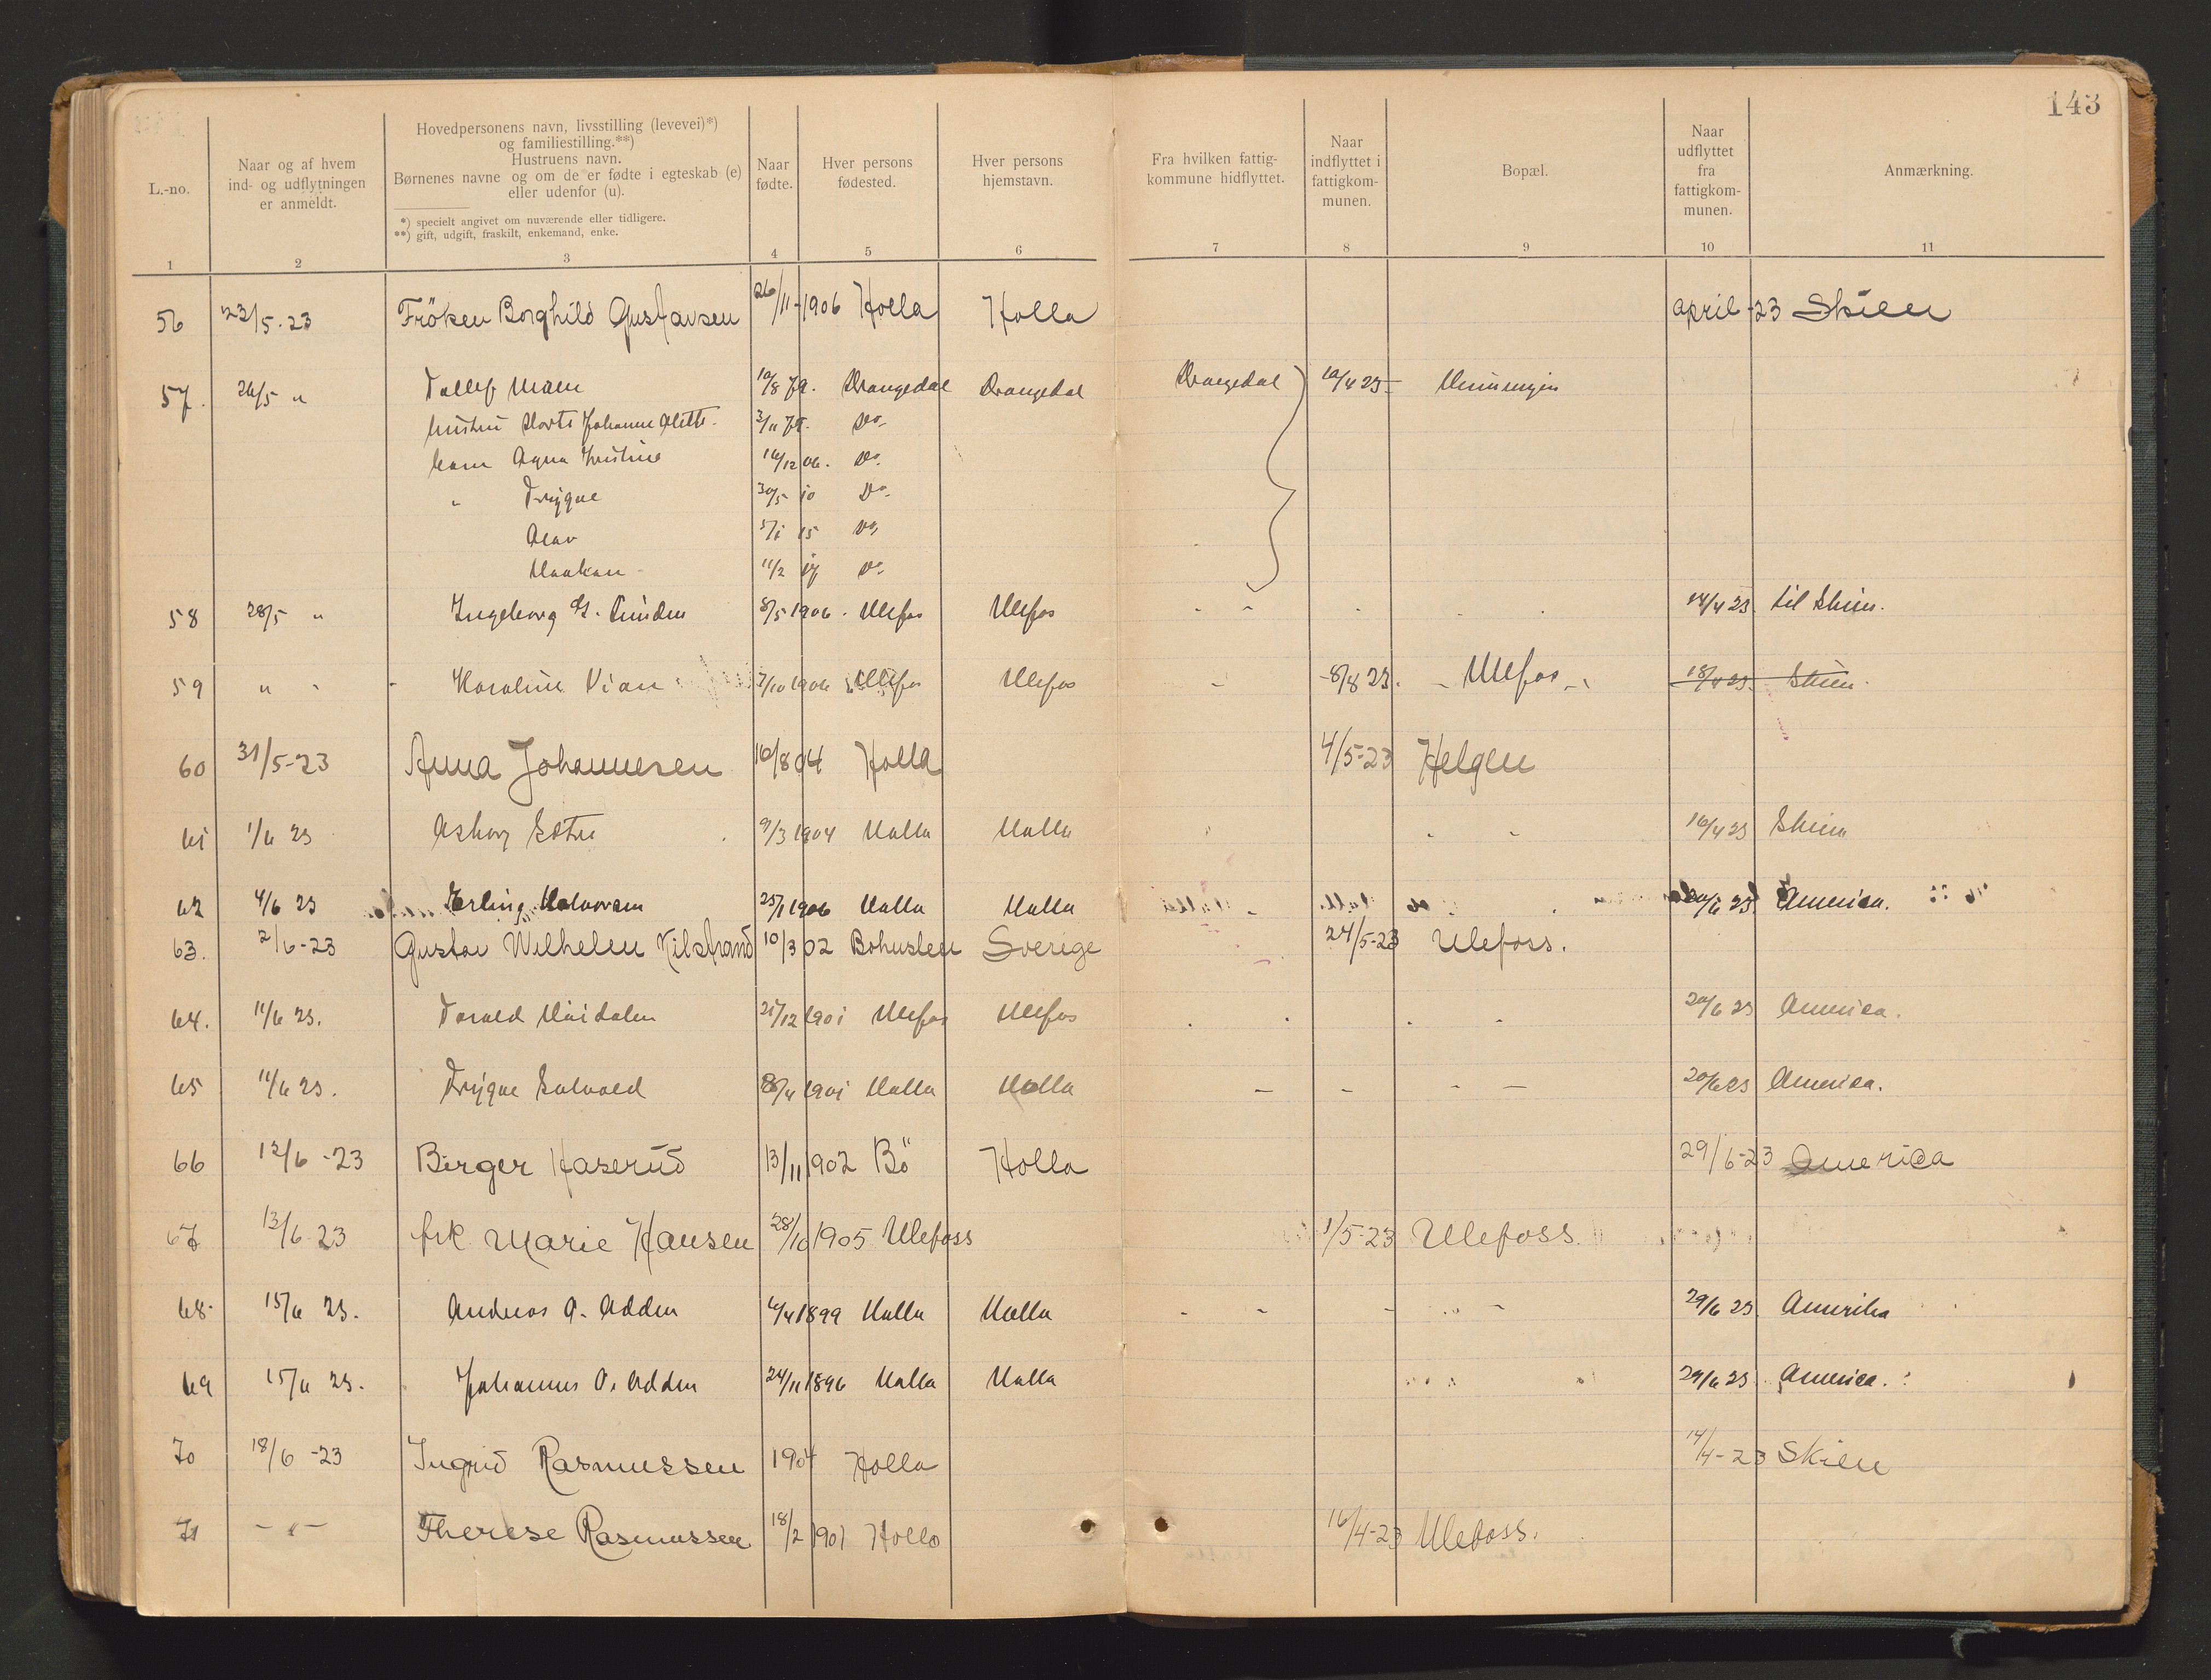 143
L.-no.
Naar og af hvem
ind- og udflytningen
er anmeldt.
Hovedpersonens navn, livsstilling (levevei)*)
og familiestilling.**)
Hustruens navn.
Børnenes navne og om de er fødte i egteskab (e)
eller udenfor (u).
*) specielt angivet om nuværende eller tidligere.
**) gift, udgift, fraskilt, enkemand, enke.
Naar
fødte.
Hver persons
fødested.
Hver persons
hjemstavn.
Fra hvilken fattig-
kommune hidflyttet.
Naar
indflyttet i
fattigkom-
munen.
Bopæl.
Naar
udflyttet
fra
fattigkom-
munen.
Anmærkning.
1 2 3 4 5 6 7 8 9 10 11
56 23/5-23 Fröken Borghild Gustavsen 26/11-1906 Holla Holla april-23 Skien
57. 26/5 " Tallef Moen 10/8 79. Drangedal Drangedal Drangedal 10/4 23
hustru Johanne 3/11 Do.
barn Agna Kristine 16/12 06. Do.
" Trygve 30/5 10 Do.
Olav 5/1 15 Do.
Haakon 11/2 17 Do.
58 28/5 " Ingeborg 8/5 1906. Ulefos Ulefos 14/4 23. til Skien.
59 " Karoline 7/10 1906 Ulefos Ulefos 8/8 23. Ulefos 18/4 23. Skien.
60 31/5-23 Anna Johannesen 10/8 04 Holla 4/5-23 Helgen
61 1/6 23 Asborg 9/3 1904 Holla Holla 16/4 23 Skien
62 4/6 23 Erling Halvorsen 25/1 1906 Holla Holla 20/6 23. America.
63. 2/6-23 Gustav Wilhelm Kilstrand 10/3 02 Bohuslen Sverige 24/5-23 Ulefoss.
64. 11/6 23. Torald 21/12 1901 Ulefos Ulefos 20/6 23 America.
65 11/6 23. Trygve 8/4 1901 Holla Holla 20/6 23 America.
66 12/6-23 Birger Haserud 13/11 1902 Bö Holla 29/6-23 America
67 13/6 23 frk Marie Hansen 28/10 1905 Ulefoss 1/5-23 Ulefoss
68. 15/6 23. Andreas O. Adden 4/4 1899 Holla Holla 29/6 23. Amerika
69 15/6 23. Johannes O. Adden 24/11 1896 Holla Holla 29/6 23. America.
70 18/6-23 Ingrid Rasmussen 1904 Holla 14/4-23 Skien
71 - " - Therese Rasmussen 18/2 1901 Holla 16/4-23 Ulefoss.